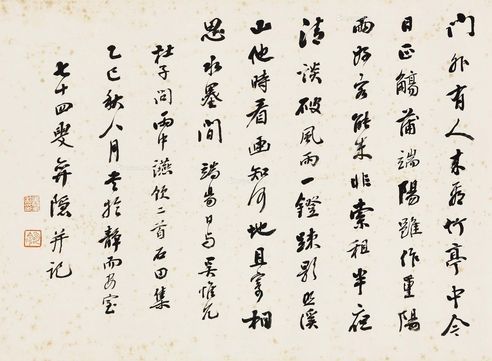 門外有人來看竹亭中今
日正觴蒲端陽雖作重陽
雨好客能來非索租半
清談破風雨一鐙疎影照溪
山他時看画知何地且寄相
思水墨間 端昜日与吳惟允
杜子雨中讌飲二首石田集
乙巳秋八月書於靜而室
七十四叟弇隱并記